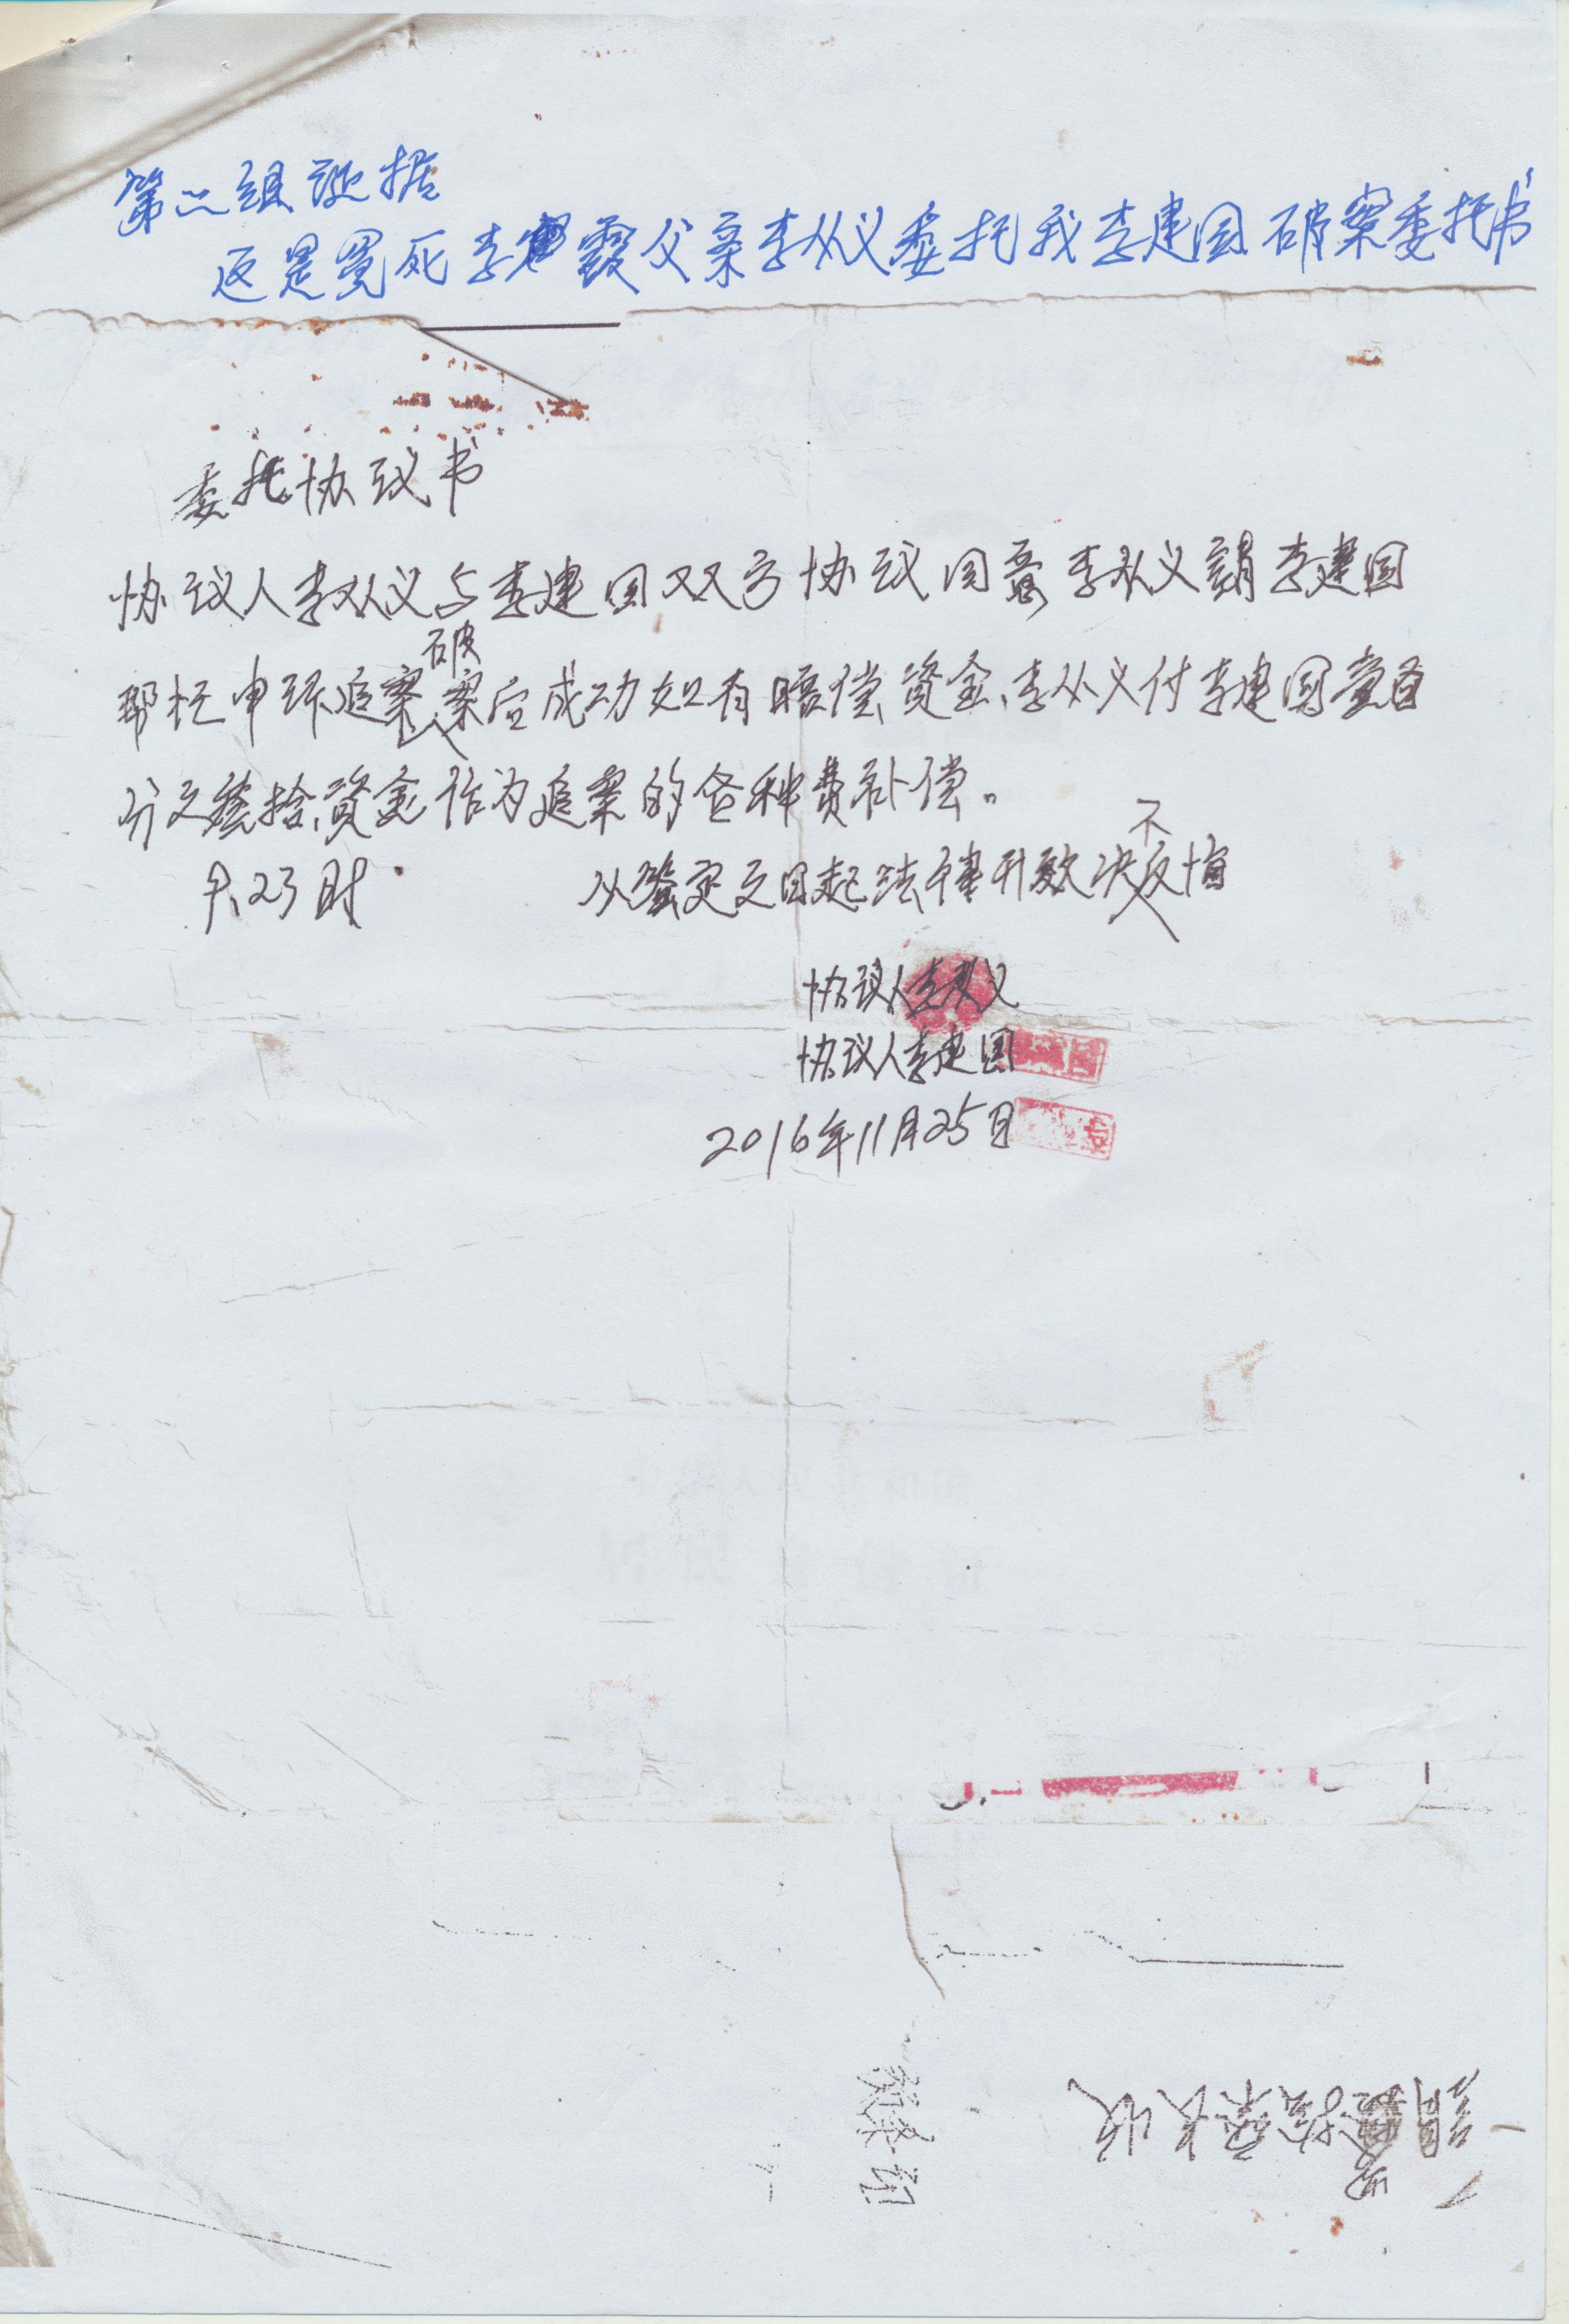 第二组证据
这是冤死李霞父亲李从义委托我李建国破案委托书
委托协议书
协议人李从义与李建国双方协议同意李从义請李建国
帮忙申环追案破案应成功如有賠偿資金、李从义付李建国壹百
分之叁拾資金作为追案的各种费补偿。
共23时 从鉴定之日起法律升效决不反悔
协议人李从义
协议人李建国
2016年11月25日